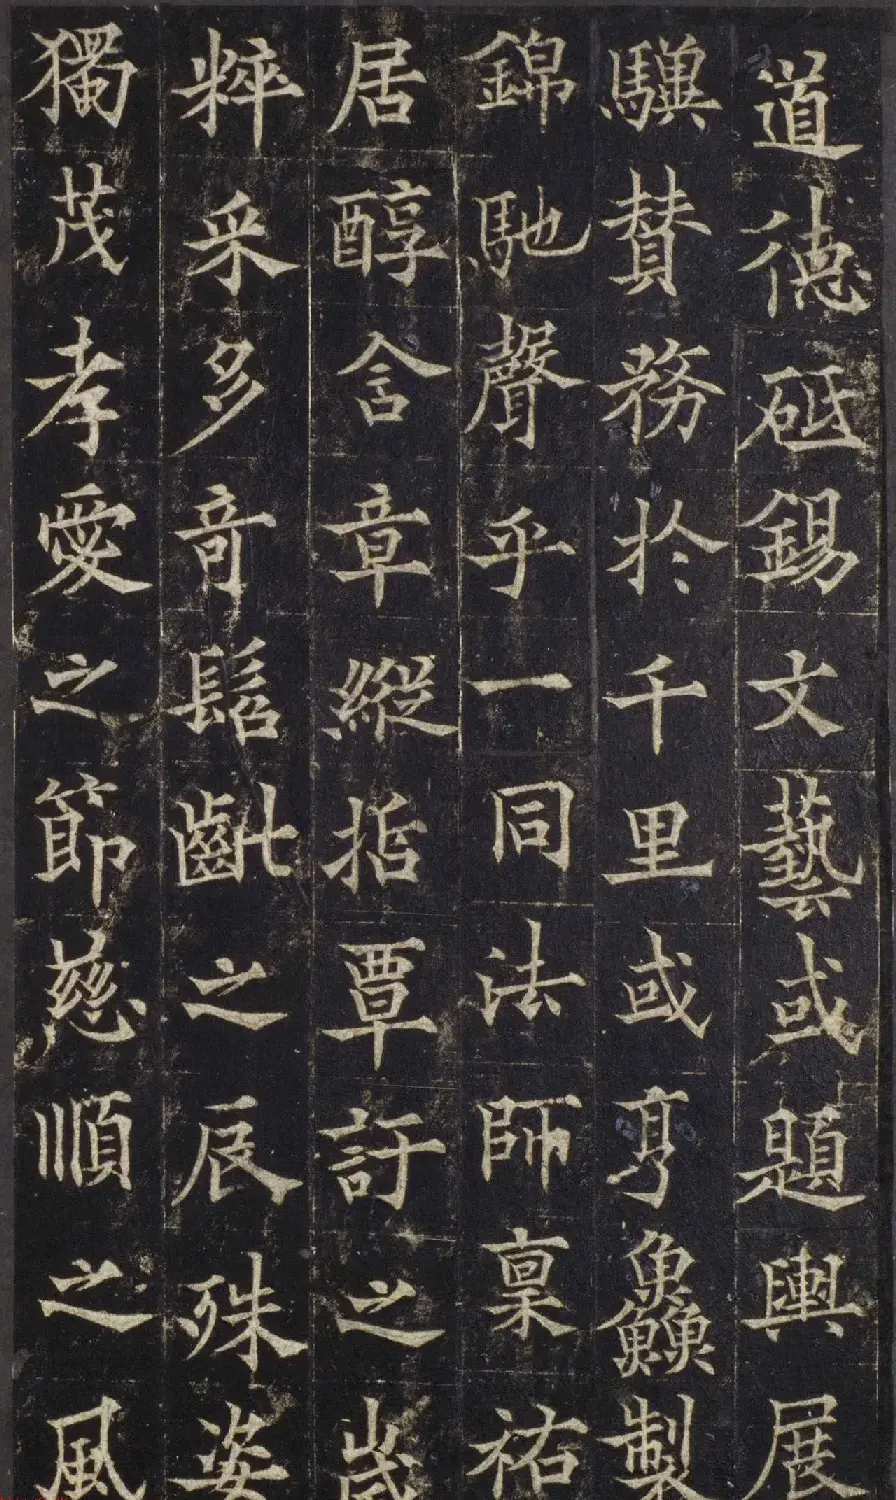 道德砥錫文藝或題輿展
驥贊務於千里或亨鱻製
錦馳聲乎一同法師稟祐
居醇含章縱括覃訏之歲
粹采多奇髫齔之辰殊姿
獨茂孝愛之節慈順之風